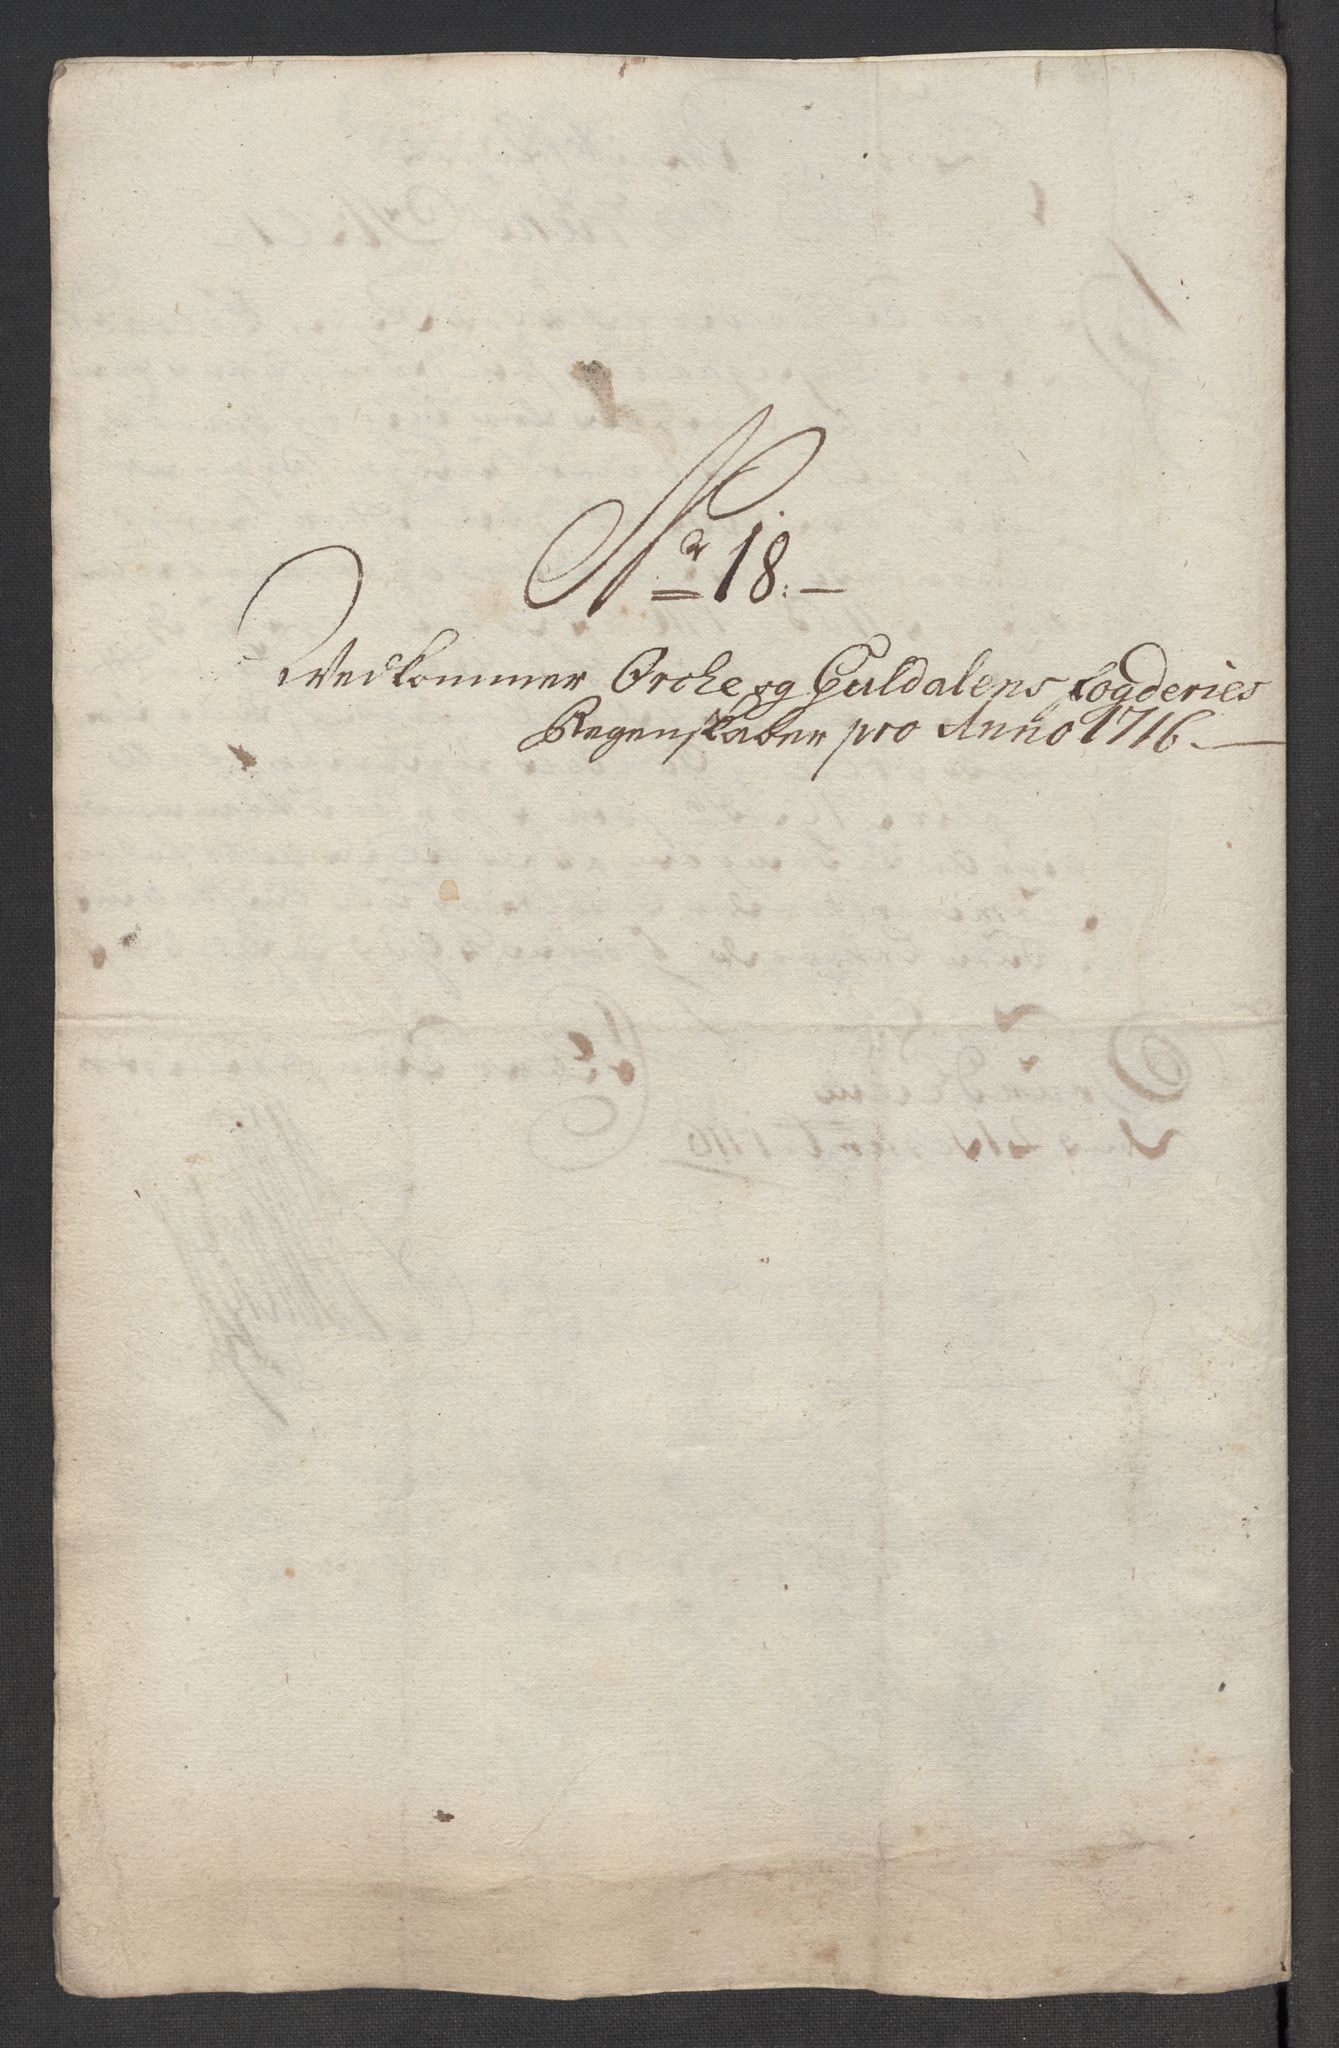 Nr 18:
Vedkommer Orche og Guldalens fogderies
Regenskaber pro Anno 1716